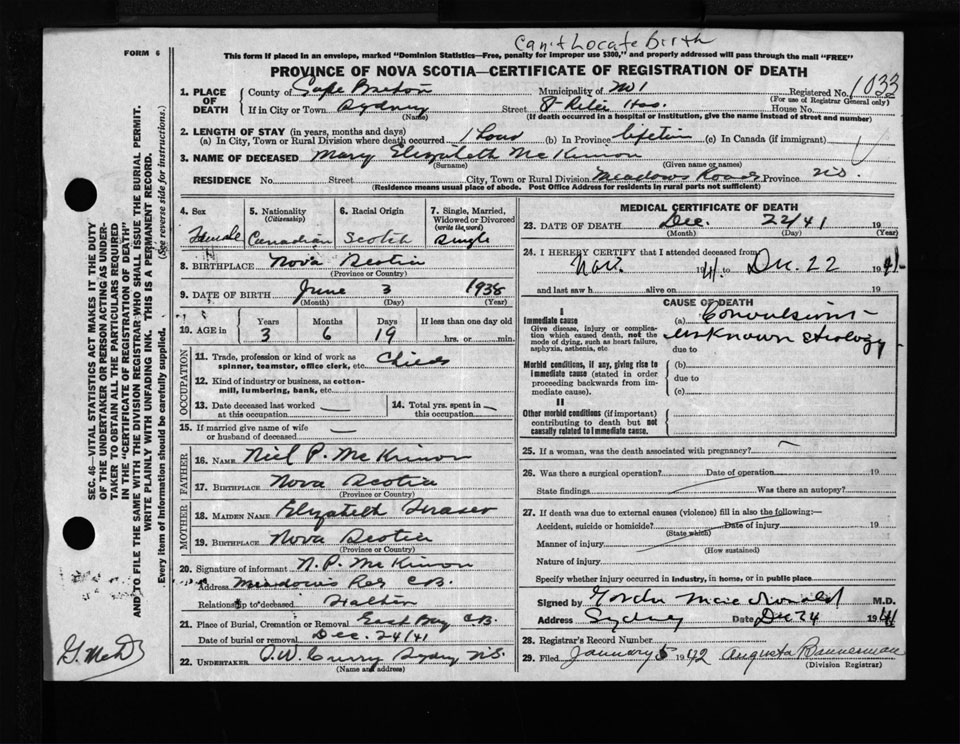 Can't Locate Birth
FORM 6
This form if placed in an envelope, marked "Dominion Statistics—Free, penalty for improper use $300," and properly addressed will pass through the mail "FREE"
PROVINCE OF NOVA SCOTIA—CERTIFICATE OF REGISTRATION OF DEATH
1. PLACE OF DEATH
County of Cape Breton Municipality of No 1 Registered No. 1033
(For use of Registrar General only)
If in City or Town Sydney Street St Ritas Hos. House No.
(Name) (If death occurred in a hospital or institution, give the name instead of street and number)
2. LENGTH OF STAY (in years, months and days)
(a) In City, Town or Rural Division where death occurred 1 hour (b) In Province lifetim (c) In Canada (if immigrant)
3. NAME OF DECEASED Mary Elizabeth McKinnon
(Surname) (Given name or names)
RESIDENCE No. Street City, Town or Rural Division Meadows Road Province N.S.
(Residence means usual place of abode. Post Office Address for residents in rural parts not sufficient)
4. Sex
Female
5. Nationality
(Citizenship)
Canadian
6. Racial Origin
Scotch
7. Single, Married, Widowed or Divorced
(write the word)
Single
8. BIRTHPLACE Nova Scotia
(Province or Country)
9. DATE OF BIRTH June 3 1938
(Month) (Day) (Year)
10. AGE in Years Months Days If less than one day old
3 6 19 hrs. or min.
OCCUPATION
11. Trade, profession or kind of work as spinner, teamster, office clerk, etc. Child
12. Kind of industry or business, as cotton-mill, lumbering, bank, etc.
13. Date deceased last worked at this occupation
14. Total yrs. spent in this occupation
15. If married give name of wife or husband of deceased
FATHER
16. NAME Niel P. McKinnon
17. BIRTHPLACE Nova Scotia
(Province or Country)
MOTHER
18. MAIDEN NAME Elizabeth Fraser
19. BIRTHPLACE Nova Scotia
(Province or Country)
20. Signature of informant N. P. McKinnon
Address Meadows Rd C.B.
Relationship to deceased Father
21. Place of Burial, Cremation or Removal East Bay C.B.
Date of burial or removal Dec. 24/41
22. UNDERTAKER O.W. Curry Sydney N.S.
(Name and address)
MEDICAL CERTIFICATE OF DEATH
23. DATE OF DEATH Dec. 22/41 19
(Month) (Day) (Year)
24. I HEREBY CERTIFY that I attended deceased from
Nov. 1941 to Dec. 22 1941
and last saw h alive on 19
CAUSE OF DEATH
I
Immediate cause (a) Convulsions -
Give disease, injury or complication which caused death, not the mode of dying, such as heart failure, asphyxia, asthenia, etc.
Unknown etiology
due to
Morbid conditions, if any, giving rise to immediate cause (stated in order proceeding backwards from immediate cause).
(b)
due to
(c)
II
Other morbid conditions (if important) contributing to death but not causally related to immediate cause.
25. If a woman, was the death associated with pregnancy?
26. Was there a surgical operation? Date of operation 19
State findings Was there an autopsy?
27. If death was due to external causes (violence) fill in also the following:—
Accident, suicide or homicide? Date of injury 19
(State which)
Manner of injury
(How sustained)
Nature of injury
Specify whether injury occurred in industry, in home, or in public place
Signed by Gordon MacDonald M.D.
Address Sydney Date Dec 24 1941
28. Registrar's Record Number
29. Filed January 5 1942 Augusta Bannerman
(Division Registrar)
SEC. 46—VITAL STATISTICS ACT MAKES IT THE DUTY
OF THE UNDERTAKER OR PERSON ACTING AS UNDER-
TAKER TO OBTAIN ALL THE PARTICULARS REQUIRED
IN THE "CERTIFICATE OF REGISTRATION OF DEATH"
AND TO FILE THE SAME WITH THE DIVISION REGISTRAR WHO SHALL ISSUE THE BURIAL PERMIT.
WRITE PLAINLY WITH UNFADING INK. THIS IS A PERMANENT RECORD.
Every item of information should be carefully supplied. (See reverse side for instructions.)